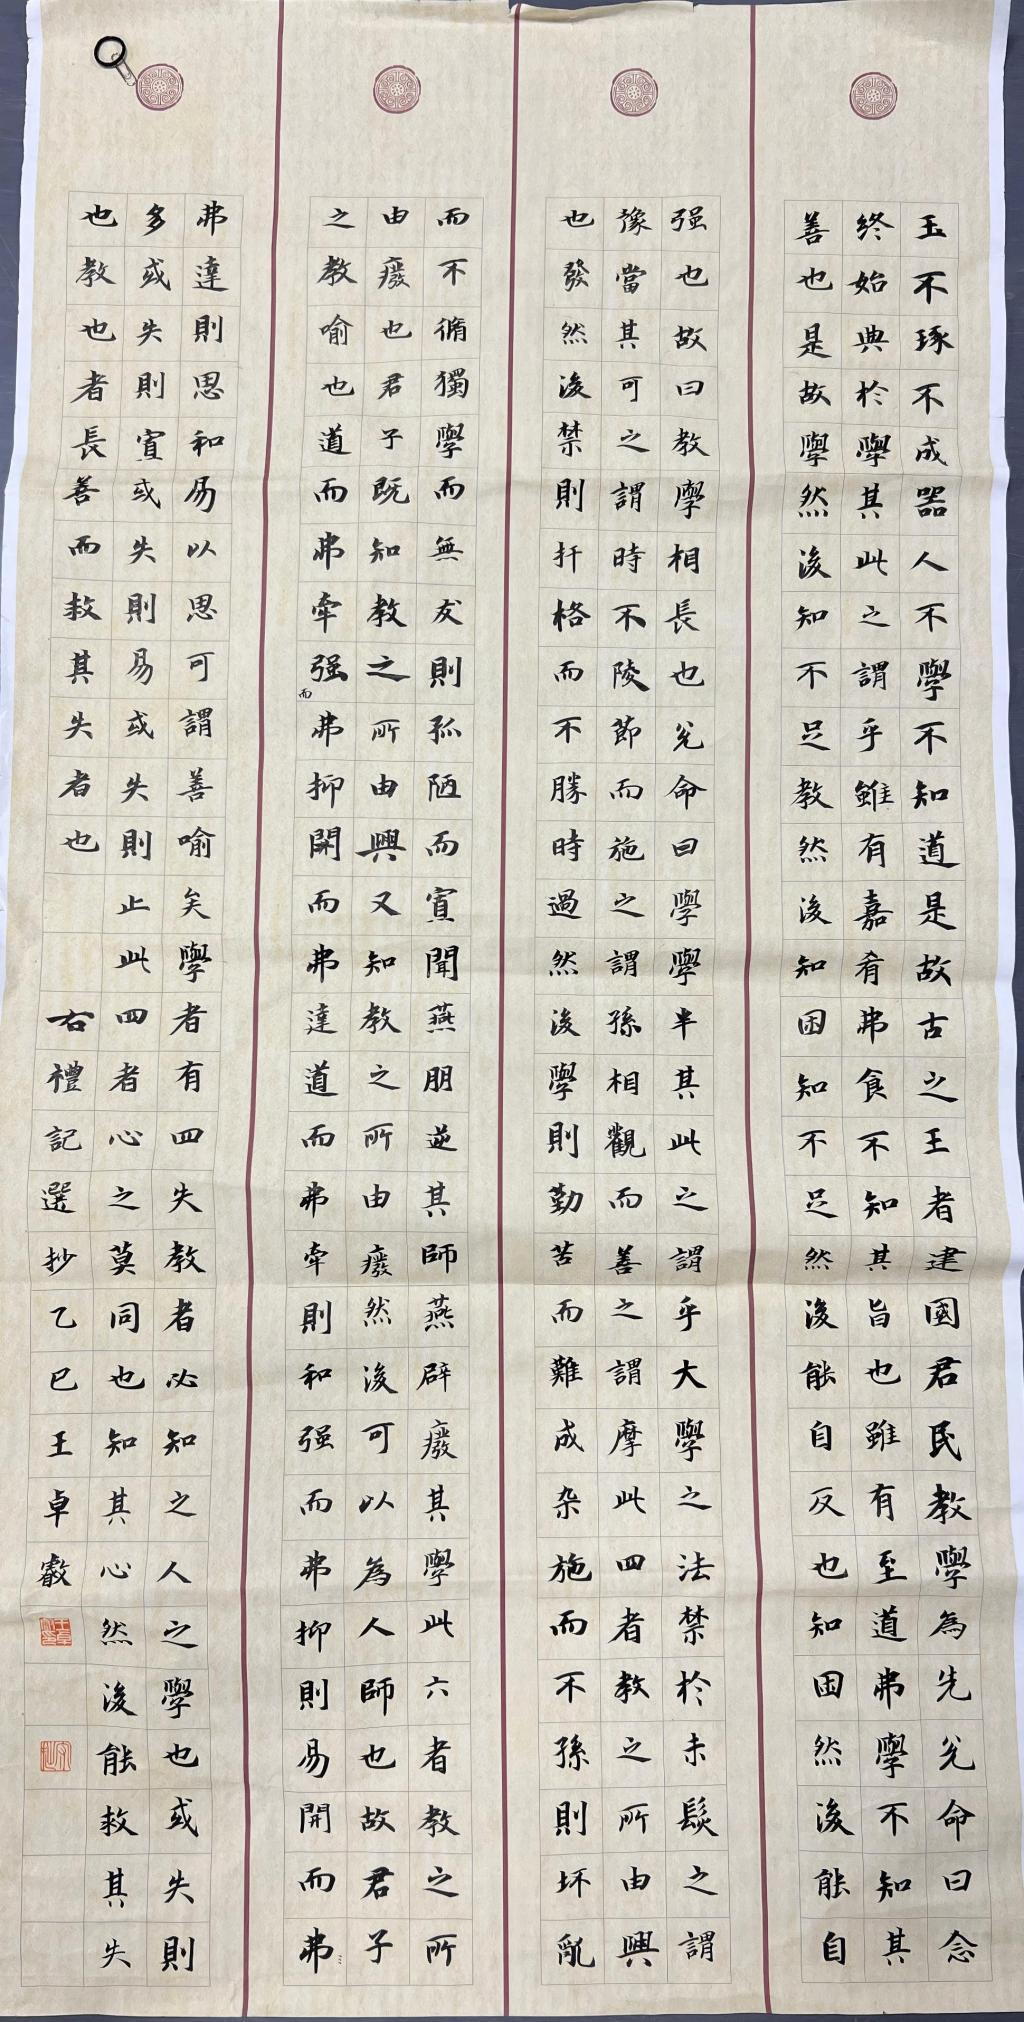 玉不琢不成器人不學不知道是故古之王者建國君民教學為先兌命曰念
終始典於學其此之謂乎雖有嘉肴弗食不知其旨也雖有至道弗學不知其
善也是故學然後知不足教然後知困知不足然後能自反也知困然後能自
强也故曰教學相長也兌命曰學學半其此之謂乎大學之法禁於未髮之謂
豫當其可之謂時不陵節而施之謂孫相觀而善之謂摩此四者教之所由興
也發然後禁則扞格而不勝時過然後學則勤苦而難成杂施而不孫則坏亂
而不脩獨學而無友則孤陋而寡聞燕朋逆其師燕辟廢其學此六者教之所
由廢也君子既知教之所由興又知教之所由廢然後可以為人師也故君子
之教喻也道而弗牽强而弗抑開而弗達道而弗牽則和强而弗抑則易開而弗
弗達則思和易以思可謂善喻矣學者有四失教者必知之人之學也或失則
多或失則寡或失則易或失則止此四者心之莫同也知其心然後能救其失
也教也者長善而救其失者也
右禮記選抄乙巳王卓叡